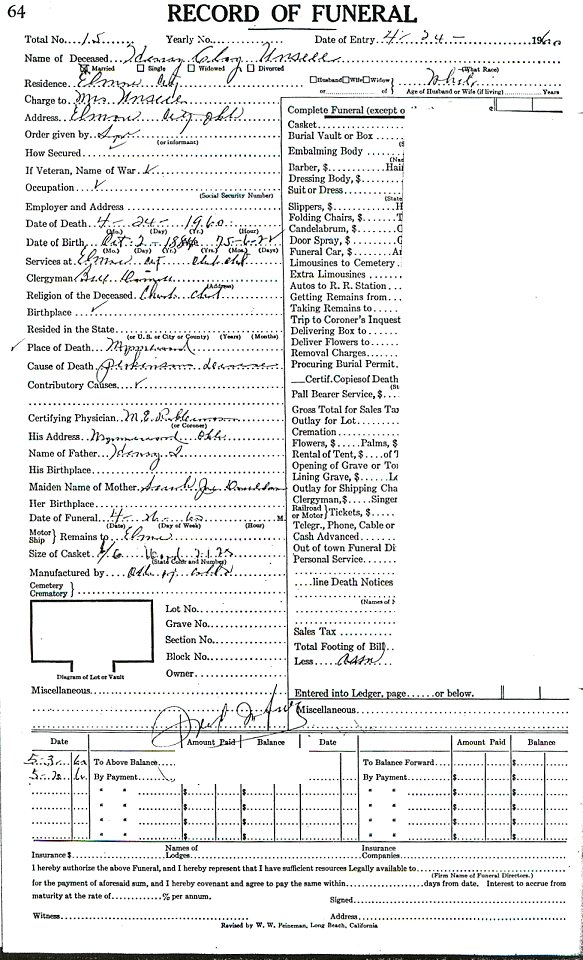 64
RECORD OF FUNERAL
Total No. 15 Yearly No. Date of Entry 4- 24- 1960
Name of Deceased Henry Clay Unsell
Married Single Widowed Divorced (What Race)
Residence Elmore City Husband Wife Widow White
or of Age of Husband or Wife (if living) Years
Charge to Mrs Unsell
Address Elmore City Okla
Order given by
(or informant)
How Secured
If Veteran, Name of War ✓
Occupation ✓
(Social Security Number)
Employer and Address
Date of Death 4- 24- 1960
(Mo.) (Day) (Yr.) (Hour)
Date of Birth Oct- 2- 1884 75-6-22
(Mo.) (Day) (Yr.) (Yrs.) (Mos.) (Days)
Services at Elmore City
(Address)
Clergyman Bill
Religion of the Deceased Church
Birthplace ✓
Resided in the State
(or U. S. or City or County) (Years) (Months)
✓ Place of Death Wynnewood
Cause of Death Parkinson disease
Contributory Causes ✓
Certifying Physician M. E. Robberson
(or Coroner)
His Address Wynnewood Okla
Name of Father Henry
His Birthplace
Maiden Name of Mother Sarah Davidson
Her Birthplace
Date of Funeral 4- 26- 60 M
(Date) (Day of Week) (Hour)
Motor Ship } Remains to Elmore
Size of Casket 6/6
(State Color and Number)
Manufactured by
Cemetery Crematory }
Lot No.
Grave No.
Section No.
Block No.
Owner
Diagram of Lot or Vault
Miscellaneous
Complete Funeral (except o e
Casket
Burial Vault or Box
(S
Embalming Body
(Na
Barber, $ Hai
Dressing Body, $
Suit or Dress
(State
Slippers, $ H
Folding Chairs, $ T
Candelabrum, $ C
Door Spray, $ G
Funeral Car, $ A
Limousines to Cemetery
Extra Limousines
Autos to R. R. Station
Getting Remains from
Taking Remains to
Trip to Coroner's Inquest
Delivering Box to
Deliver Flowers to
Removal Charges
Procuring Burial Permit
Certif. Copies of Death
Pall Bearer Service, $
Gross Total for Sales Tax
Outlay for Lot
Cremation
Flowers, $ Palms, $
Rental of Tent, $ of T
Opening of Grave or To
Lining Grave, $ L
Outlay for Shipping Cha
Clergyman, $ Singer
Railroad or Motor } Tickets, $
Telegr., Phone, Cable or
Cash Advanced
Out of town Funeral Di
Personal Service
line Death Notices
(Names of N
Sales Tax
Total Footing of Bill
Less Assn
Entered into Ledger, page or below.
Miscellaneous
Date Amount Paid Balance Date Amount Paid Balance
5-3- 60 To Above Balance To Balance Forward $
By Payment By Payment $
" " $ " " $
" " $ " " $
" " $ " " $
" " $ " " $
Insurance $ Names of Lodges Insurance Companies
I hereby authorize the above Funeral, and I hereby represent that I have sufficient resources Legally available to
(Firm Name of Funeral Directors.)
for the payment of aforesaid sum, and I hereby covenant and agree to pay the same within days from date. Interest to accrue from
maturity at the rate of % per annum. Signed
Witness Address
Revised by W. W. Peineman, Long Beach, California